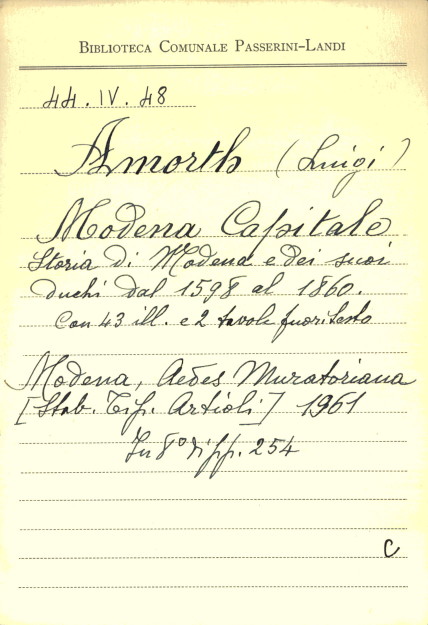 BIBLIOTECA COMUNALE PASSERINI-LANDI
44.IV.48
Amorth (Luigi)
Modena Capitale
Storia di Modena e dei suoi
duchi dal 1598 al 1860.
Con 43 ill. e 2 tavole fuori testo
Modena, Aedes Muratoriana
[Stab. Tip. Artioli] 1961
In 8º di pp. 254
C